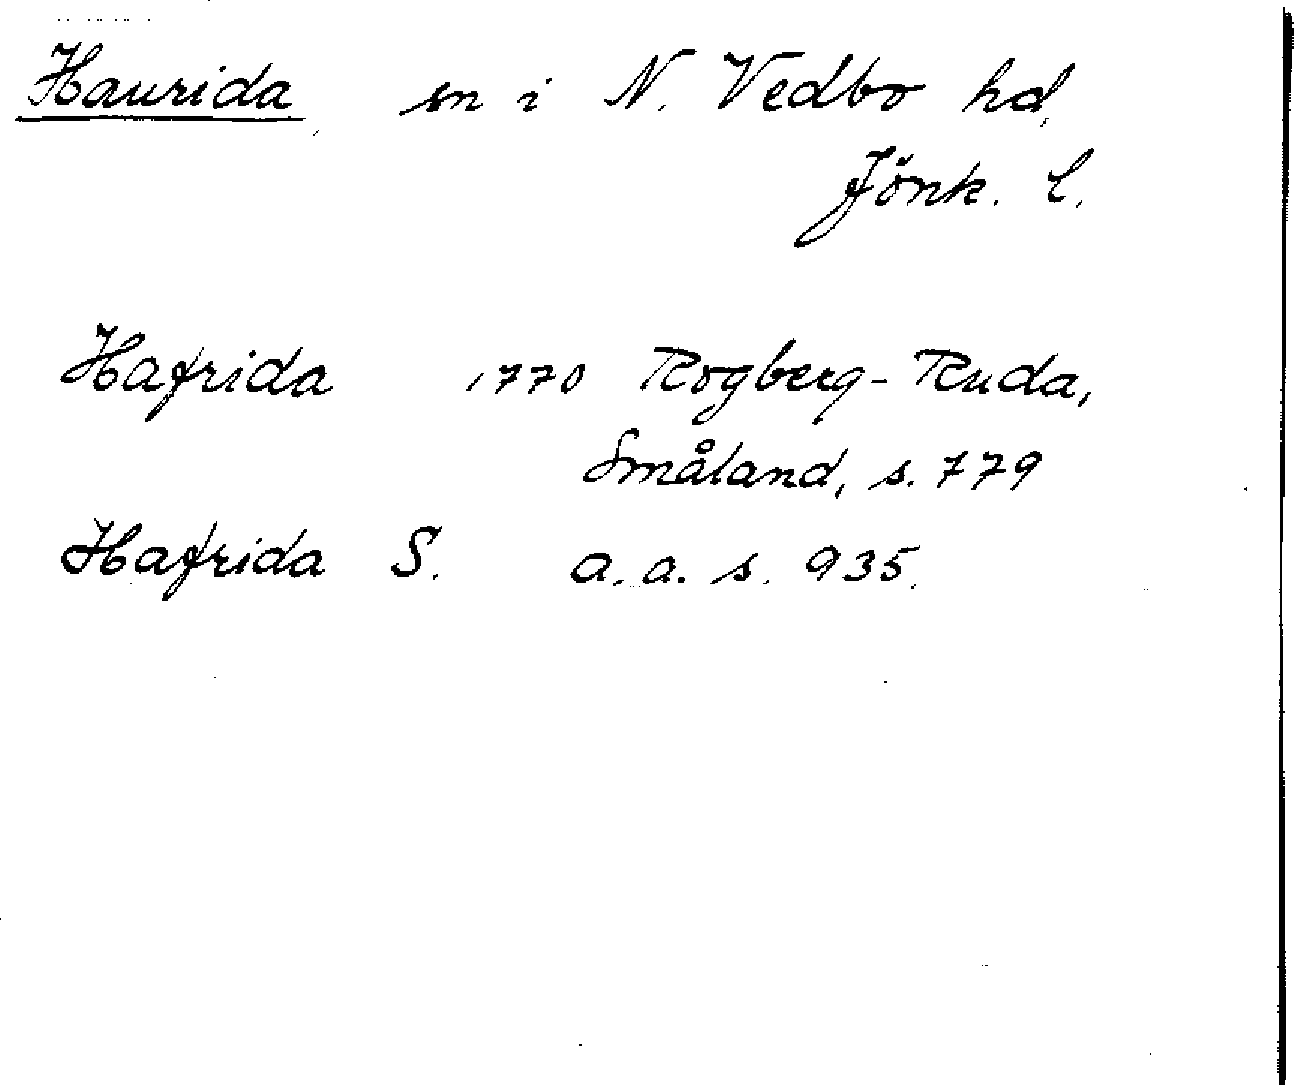 Haurida sn i N. Vedbo hd,
Jönk. l.
Hafrida 1770 Rogberg-Ruda,
Småland, s. 779
Hafrida S. a. a. s. 935.